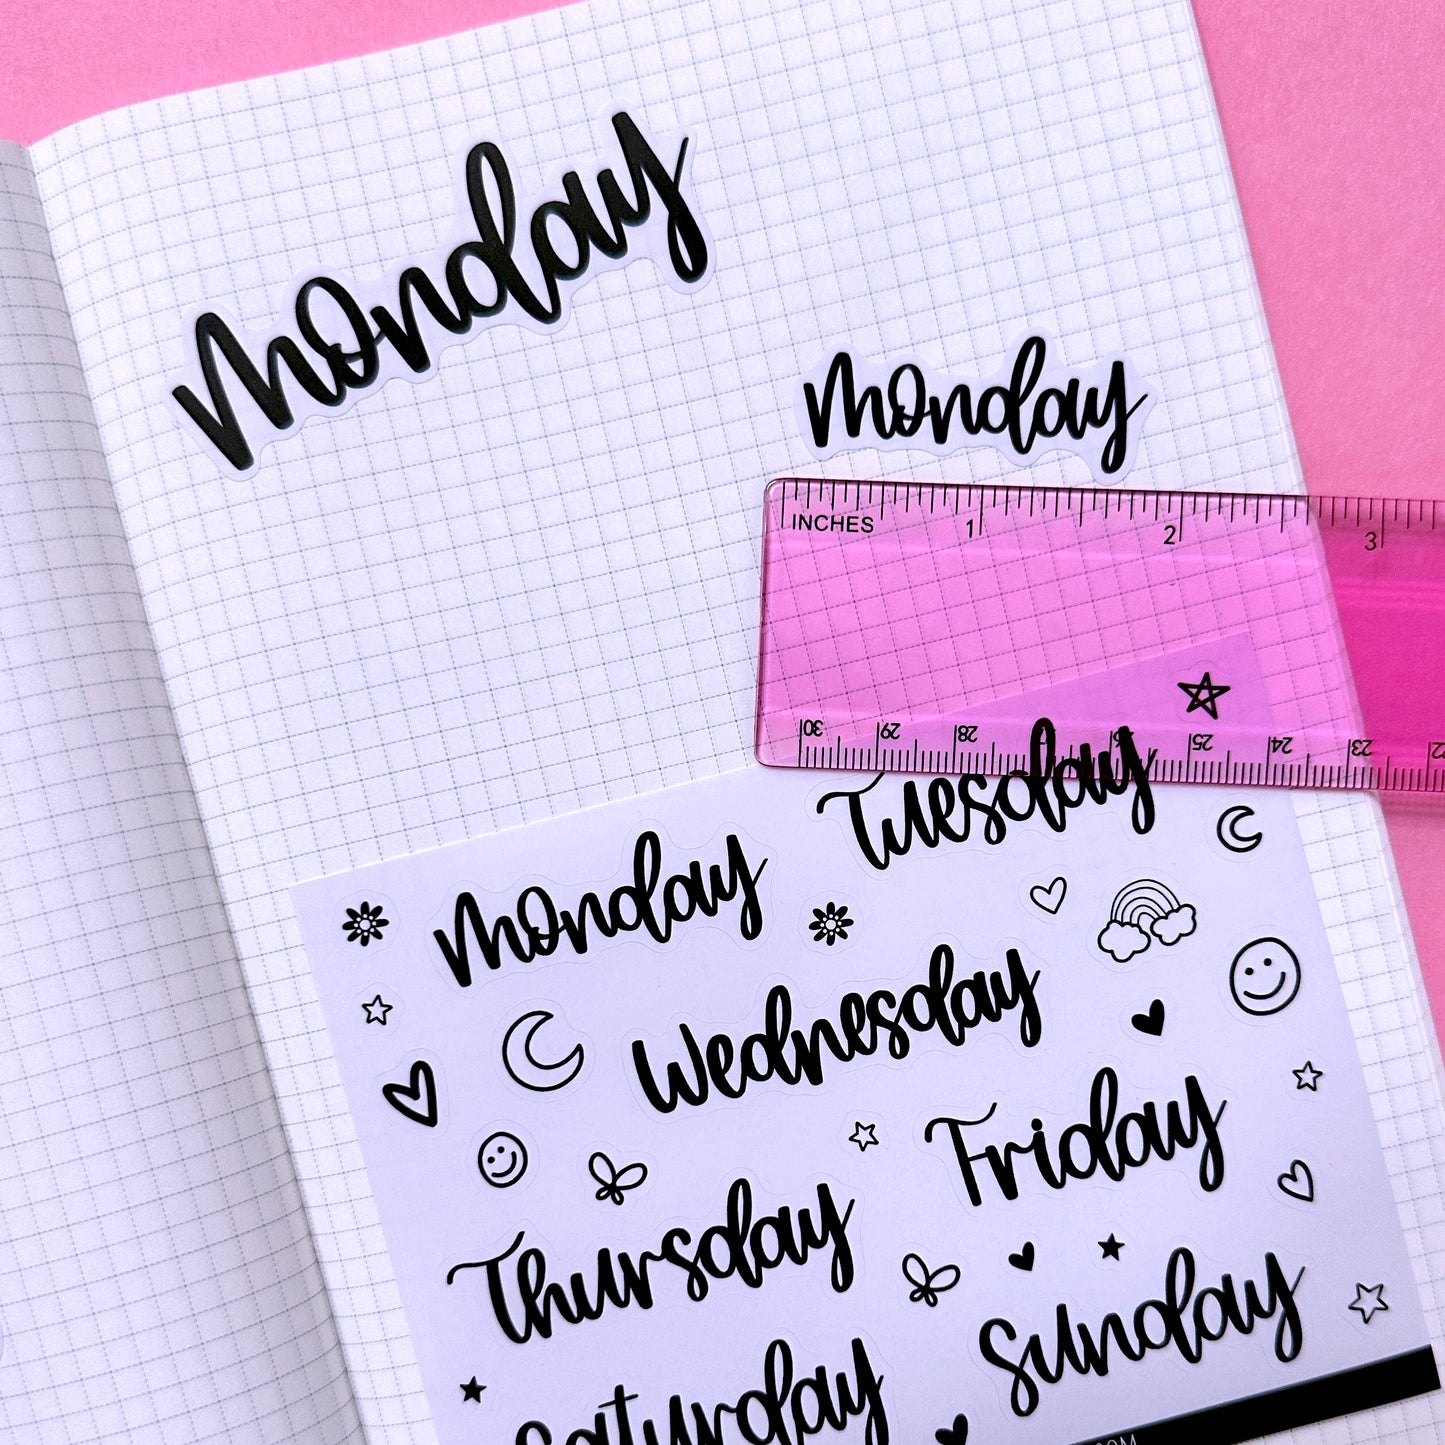 Monday
Monday
INCHES 1 2 3
30 29 28 26 25 24 23 22
Tuesday
Monday
Wednesday
Friday
Thursday
Sunday
Saturday